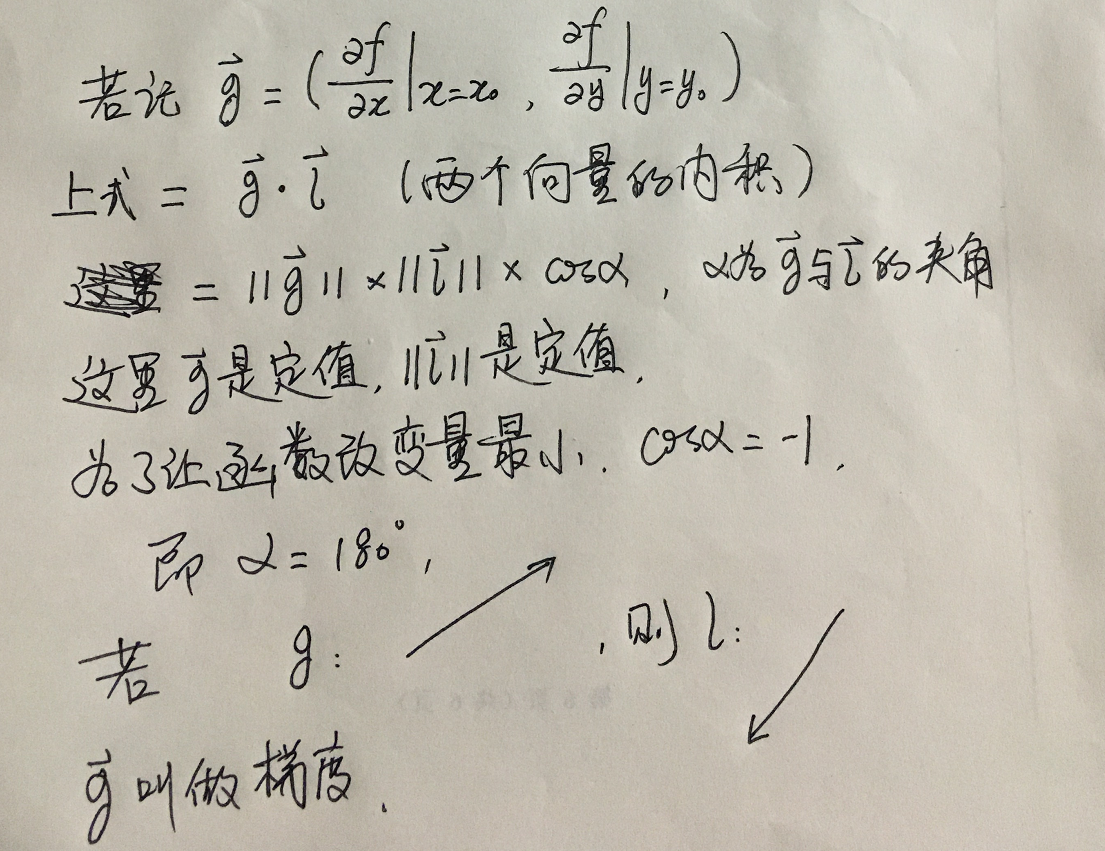 若记 g⃗ = (∂f/∂x|x=x₀, ∂f/∂y|y=y₀)
上式 = g⃗·l⃗ (两个向量的内积)
= ||g⃗|| × ||l⃗|| × cosα, α为g⃗与l⃗的夹角
这里g⃗是定值, ||l⃗||是定值,
为了让函数改变量最小, cosα = -1,
即 α = 180°,
若 g: , 则 l:
g⃗叫做梯度.